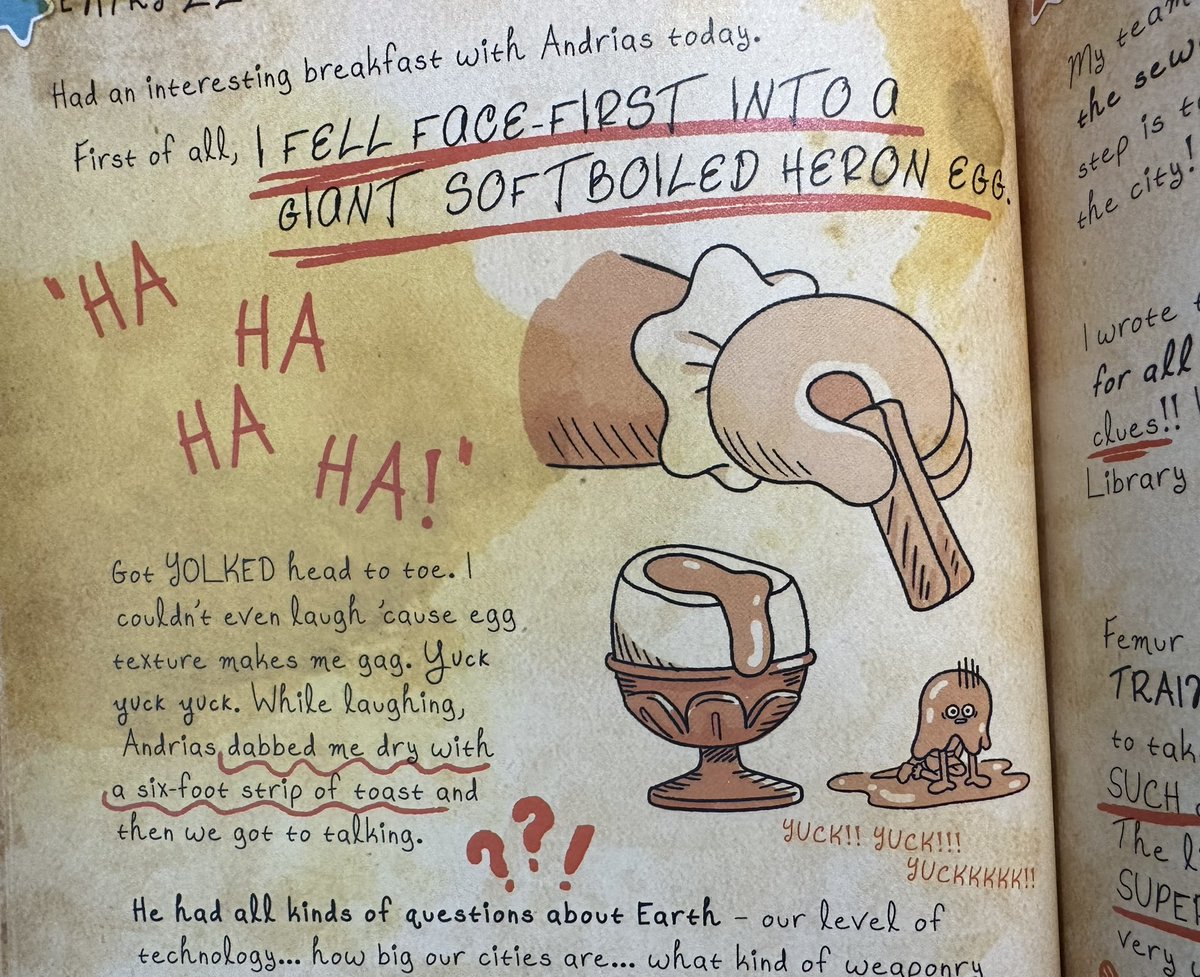 Had an interesting breakfast with Andrias today.
First of all, I FELL FACE-FIRST INTO A
GIANT SOFTBOILED HERON EGG.
"HA
HA
HA
HA!"
Got YOLKED head to toe. I
couldn't even laugh 'cause egg
texture makes me gag. Yuck
yuck yuck. While laughing,
Andrias dabbed me dry with
a six-foot strip of toast and
then we got to talking.
??!
YUCK!! YUCK!!!
YUCKKKKK!!
He had all kinds of questions about Earth - our level of
technology... how big our cities are... what kind of weaponry
My team
the sew
step is t
the city!
I wrote t
for all
clues!!
Library
Femur
to tak
SUCH
The li
SUPER
very